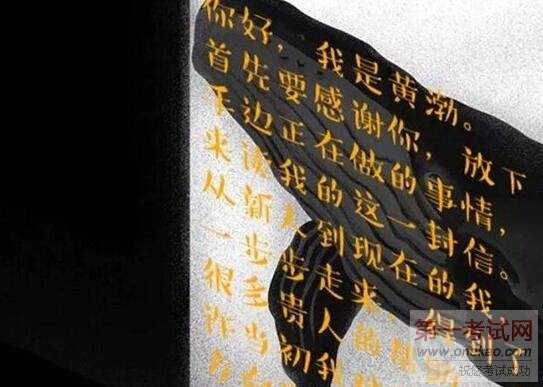 你好，我是黄渤。
首先要感谢你，放下
手边正在做的事情，
来读我的这一封信。
从新人到现在的我，
一步步走来，得到了
很多贵人的
许当初我
第一考试网
www.onekao.com
祝您考试成功